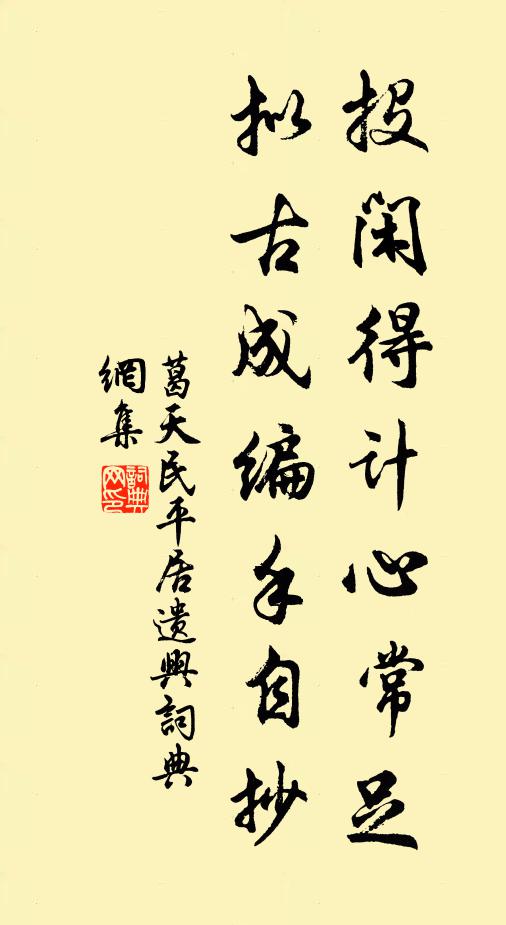 投闲得计心常足
拟古成编手自抄
葛天民平居遗興詞典
網集
詞典
网印